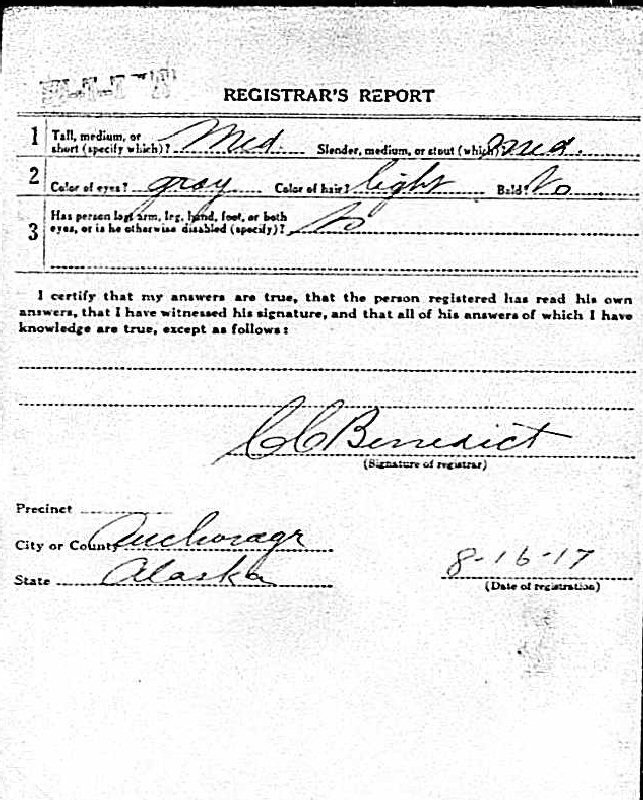 REGISTRAR'S REPORT
1 Tall, medium, or short (specify which)? Med. Slender, medium, or stout (which)? med.
2 Color of eyes? gray Color of hair? light Bald? No
3 Has person lost arm, leg, hand, foot, or both
eyes, or is he otherwise disabled (specify)? No
I certify that my answers are true, that the person registered has read his own
answers, that I have witnessed his signature, and that all of his answers of which I have
knowledge are true, except as follows:
CC Benedict
(Signature of registrar)
Precinct
City or County Anchorage
State Alaska
8-16-17
(Date of registration)